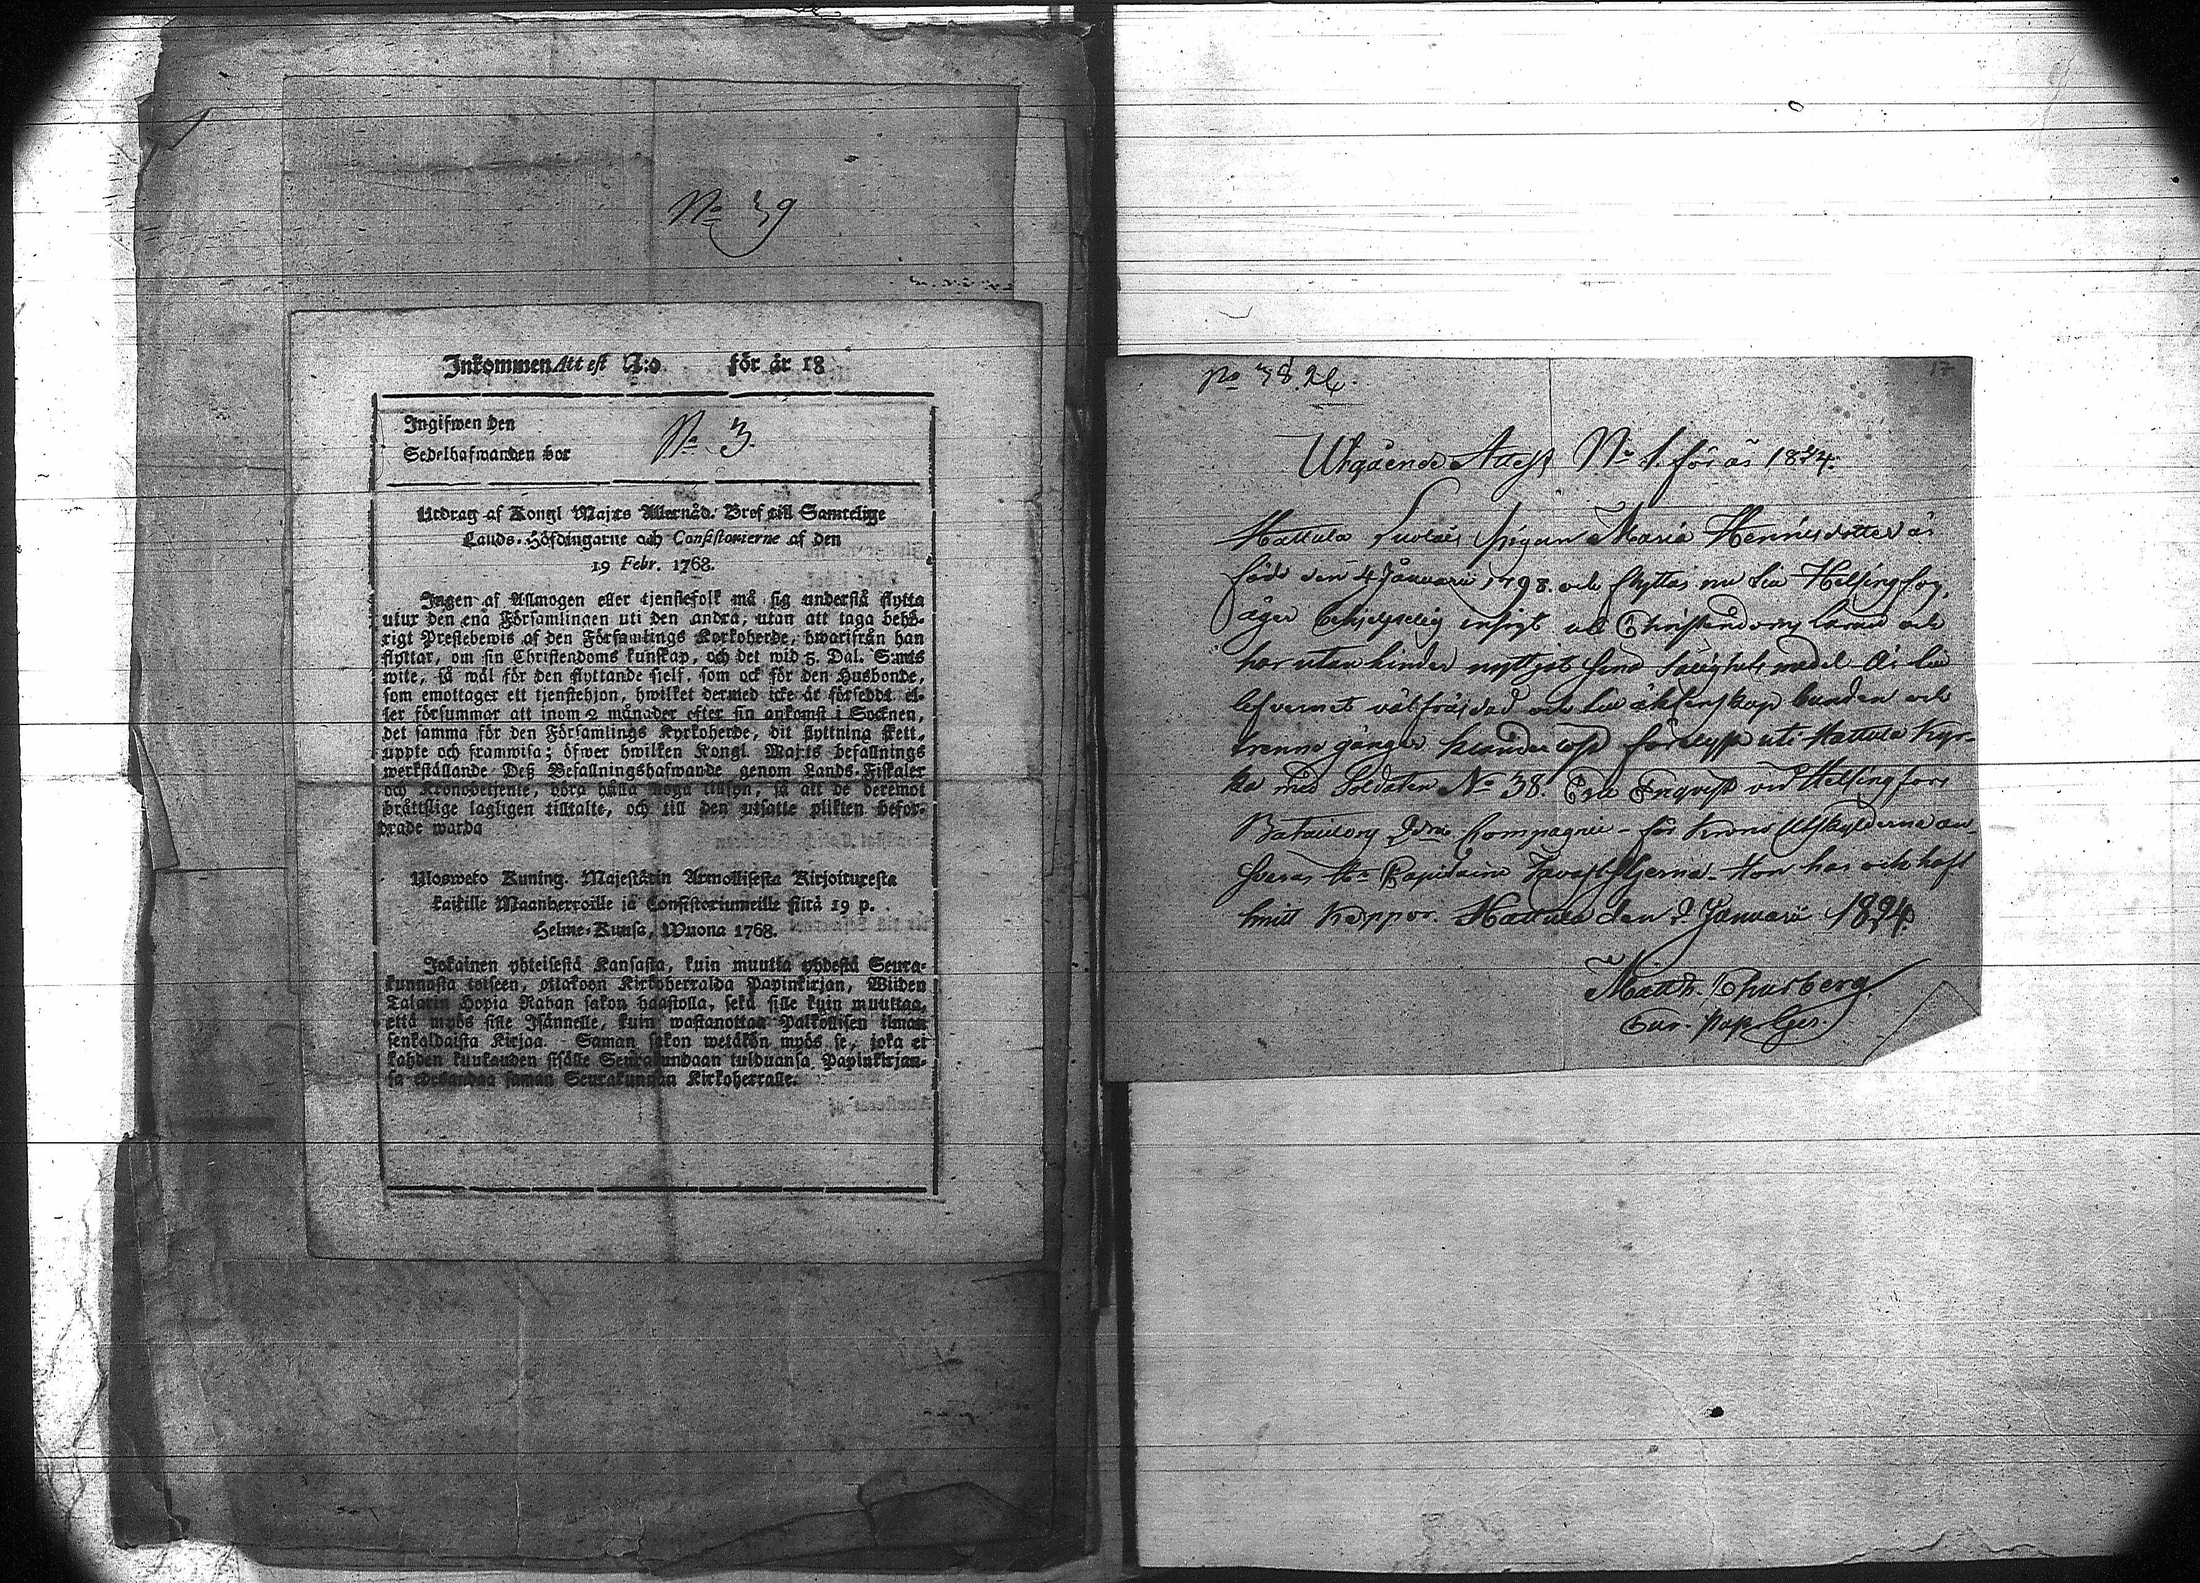 No 39
Inkommen Attest N:o för år 18
Ingifwen den
Sedelhafwanden bor
No 3.
Utdrag af Kongl Maj:ts Allernåd. Bref till Samtelige
Lands-Höfdingarne och Consistorierne af den
19 Febr. 1768.
Ingen af Allmogen eller tjenstefolk må sig understå flytta
utur den ena Församlingen uti den andra, utan att taga behö-
rigt Prestebewis af den Församlings Kyrkoherde, hwarifrån han
flyttar, om sin Christendoms kunskap, och det wid 5. Dal. S:mts
wite, så wäl för den flyttande sjelf, som ock för den Husbonde,
som emottager ett tjenstehjon, hwilket dermed icke är försedd; el-
ler försummar att inom 2 månader efter sin ankomst i Socknen,
det samma för den Församlings Kyrkoherde, dit flyttning skett,
uppte och framwisa; öfwer hwilken Kongl Maj:ts befallnings
werkställande Deß Befallningshafwande genom Lands-Fiskaler
och Kronobetjente, böra hålla noga tillsyn, så att de deremot
brättslige lagligen tilltalte, och till den utsatte plikten befor-
drade warda
Ulosweto Kuning. Majestätin Armollisesta Kirjoituxesta
kaikille Maanherroille ja Consistoriumeille siitä 19 p.
Helme-Kuusa, Wuona 1768.
Jokainen yhteisestä Kansasta, kuin muutta yhdestä Seura-
kunnasta toiseen, ottakoon Kirkoherralda Papinkirjan, Wiiden
Talarin Hopia Rahan sakon haastolla, sekä sille kuin muuttaa,
että myös sille Isännelle, kuin wastanottaa Palkollisen ilman
senkaldaista Kirjaa. Saman sakon wetäkön myös se, joka ei
kahden kuukauden sisälle Seurakundaan tulduansa Papinkirjan-
sa edesandaa saman Seurakunnan Kirkoherralle.
No 38. 24.
17
Utgående Attest No 1. för år 1824.
Hattula Pigan Maria Henricsdotter är
född den 4 Januarii 1798. och flyttar nu till Helsingfors,
äger behjelpelig insigt uti Christendoms läran och
har utan hinder nyttjat sina salighets medel. Är till
lefvernet välfräjdad och till äktenskap bunden och
trenne gånger klanderlöst förlyst uti Hattula Kyr-
ka med Soldaten No 38 Enqvist vid Helsingfors
Bataillons Compagnie - för Krono Utskylderne an-
svaras Hr Capitaine Tavaststjerna. Hon har ock haft
smitt Koppor. Hattula den 2 Januarii 1824.
Matth. Churberg.